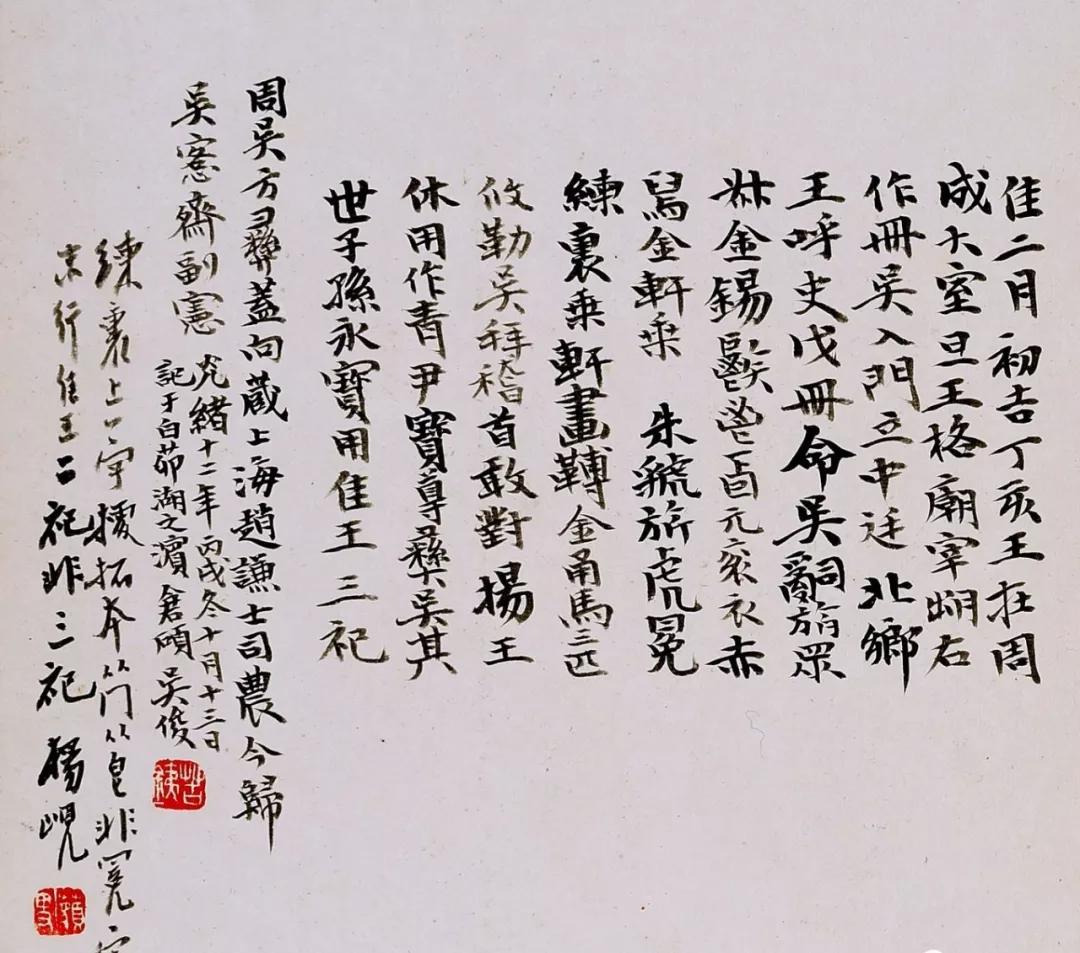 隹二月初吉丁亥王在周
成大室旦王格廟宰朏右
作冊吳入門立中廷北鄉
王呼史戊冊命吳嗣旃眾
叔金錫鬯卣元袞衣赤
舄金軒乘 朱虢旂虎冕
練裏乘軒畫轉金甬馬三匹
攸勒吳拜稽首敢對揚王
休用作青尹寶尊彝吳其
世子孫永寶用隹王三祀
周吳方彝蓋向藏上海趙謙士司農今歸
吳愙齋副憲 光緒十二年丙戌冬十月十三日
記于白茆湖之濱 倉碩吳俊
苦鐵
練裏上一字援拓本從冂從皀非冕字
末行隹王二祀非三祀 楊峴